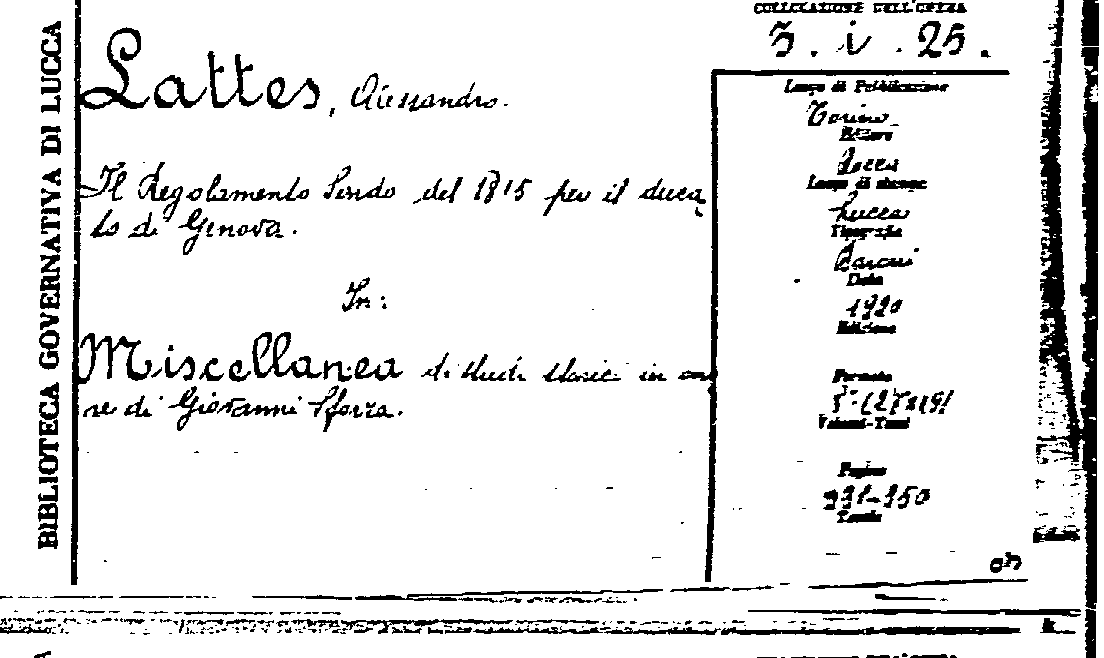 BIBLIOTECA GOVERNATIVA DI LUCCA
COLLOCAZIONE DELL'OPERA
3. i. 25.
Lattes, Alessandro.
Il Regolamento Sardo del 1815 per il duca
to di Genova.
In:
Miscellanea di studi storici in ono
re di Giovanni Sforza.
Luogo di Pubblicazione
Torino
Editore
Bocca
Luogo di stampa
Lucca
Tipografia
Baroni
Data
1920
Edizione
Formato
Volumi-Tomi
Pagine
Tavole